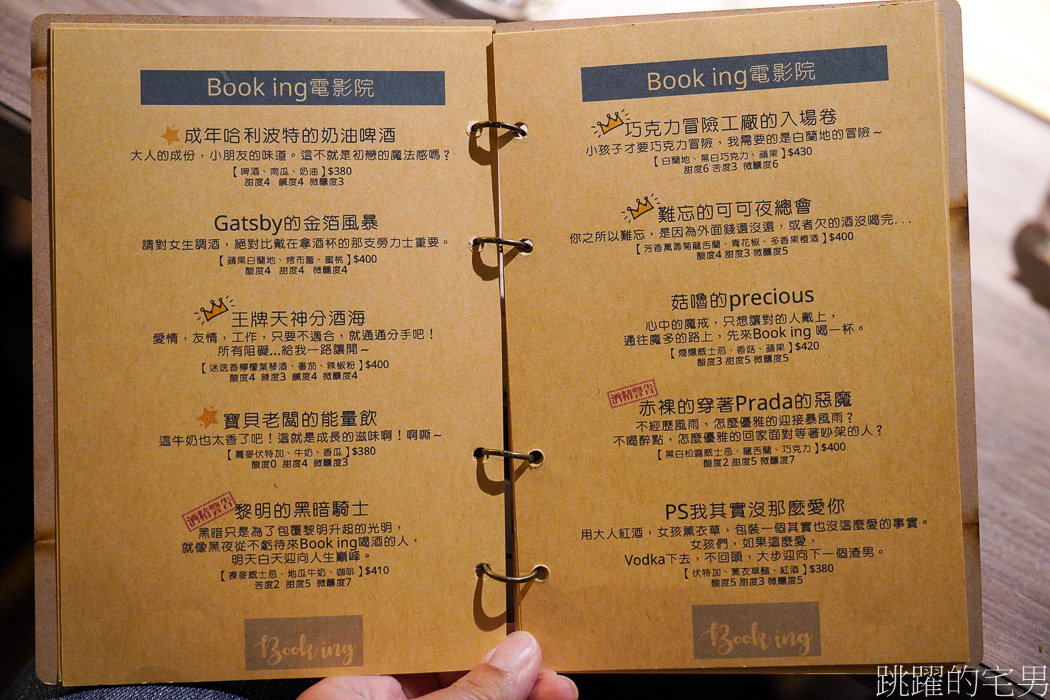 Book ing電影院
成年哈利波特的奶油啤酒
大人的成份，小朋友的味道。這不就是初戀的魔法感嗎？
【啤酒、南瓜、奶油】$380
甜度4 鹹度4 微醺度3
Gatsby的金箔風暴
請對女生調酒，絕對比戴在拿酒杯的那支勞力士重要。
【蘋果白蘭地、烤布蕾、蜜桃】$400
酸度4 甜度4 微醺度4
王牌天神分酒海
愛情，友情，工作，只要不適合，就通通分手吧！
所有阻礙...給我一路讓開~
【迷迭香檸檬葉琴酒、番茄、辣椒粉】$400
酸度4 辣度3 鹹度4 微醺度4
寶貝老闆的能量飲
這牛奶也太香了吧！這就是成長的滋味啊！啊嘶~
【蕎麥伏特加、牛奶、香瓜】$380
酸度0 甜度4 微醺度3
酒精警告
黎明的黑暗騎士
黑暗只是為了包覆黎明升起的光明，
就像黑夜從不虧待來Book ing喝酒的人，
明天白天迎向人生巔峰。
【裸麥威士忌、地瓜牛奶、咖啡】$410
苦度2 甜度5 微醺度7
Book ing
Book ing電影院
巧克力冒險工廠的入場卷
小孩子才要巧克力冒險，我需要的是白蘭地的冒險~
【白蘭地、黑白巧克力、蘋果】$430
甜度6 苦度3 微醺度6
難忘的可可夜總會
你之所以難忘，是因為外面錢還沒還，或者欠的酒沒喝完...
【芳香萬壽菊龍舌蘭、青花椒、多香果橙酒】$400
酸度4 甜度3 微醺度5
菇嚕的precious
心中的魔戒，只想讓對的人戴上，
通往魔多的路上，先來Book ing 喝一杯。
【煙燻威士忌、香菇、蘋果】$420
酸度3 甜度5 微醺度5
酒精警告
赤裸的穿著Prada的惡魔
不經歷風雨，怎麼優雅的迎接暴風雨？
不喝醉點，怎麼優雅的回家面對等著吵架的人？
【黑白松露威士忌、龍舌蘭、巧克力】$400
酸度2 甜度5 微醺度7
PS我其實沒那麼愛你
用大人紅酒，女孩薰衣草，包裝一個其實也沒這麼愛的事實。
女孩們，如果這麼愛，
Vodka下去，不回頭，大步迎向下一個渣男。
【伏特加、薰衣草醋、紅酒】$380
酸度5 甜度3 微醺度5
Book ing
跳躍的宅男